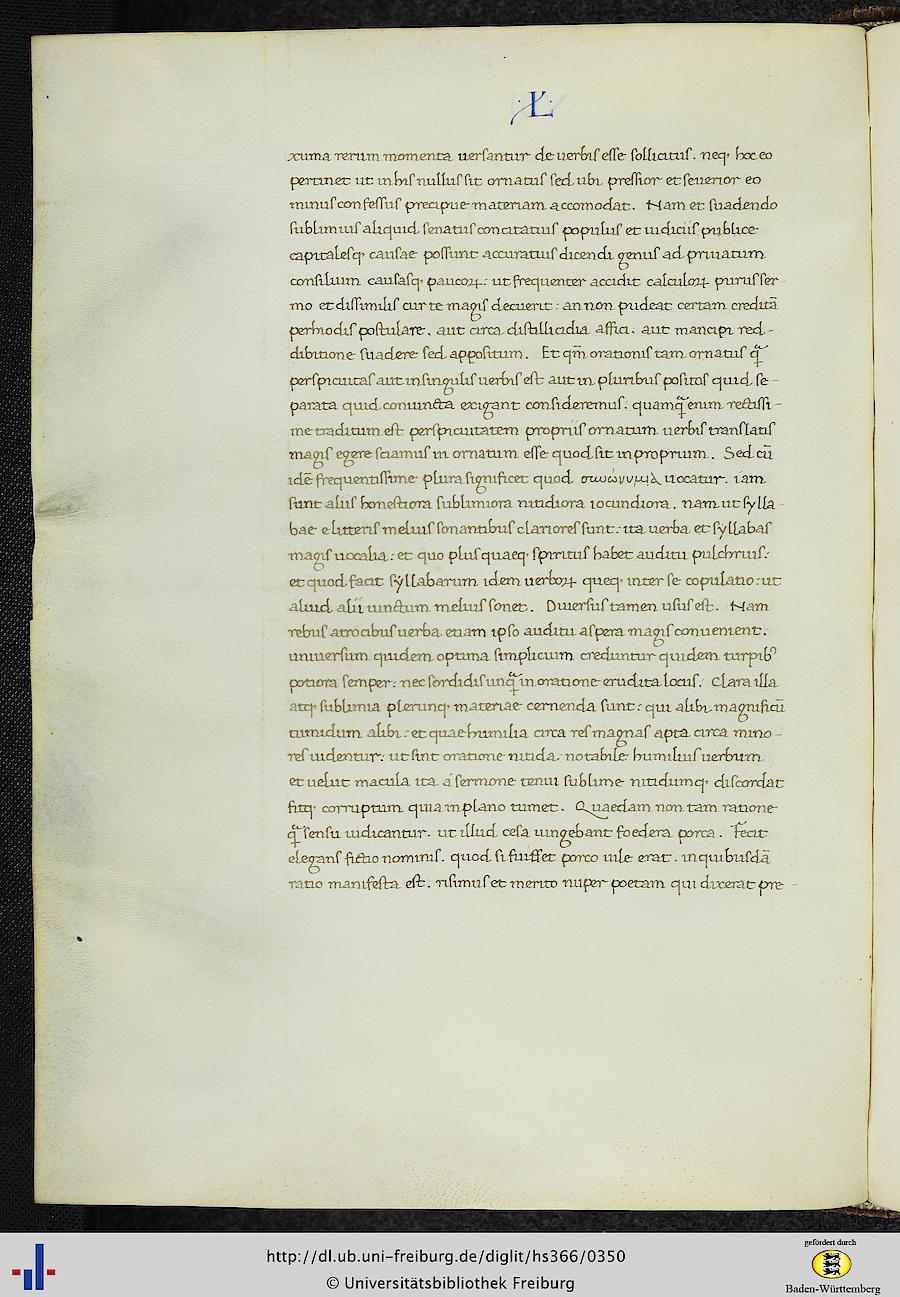 ·L·
xuma rerum momenta uersantur de uerbis esse sollicitus. neq; hoc eo
pertinet ut in his nullus sit ornatus sed ubi pressior et seuerior eo
minus confessus precipue materiam accomodat. Nam et suadendo
sublimius aliquid senatus concitatius populus et iudiciis publice
capitalesq; causae possunt accuratius dicendi genus ad priuatum
consilium causasq; paucoꝝ: ut frequenter accidit calculoꝝ purus ser-
mo et dissimilis cur te magis decuerit: an non pudeat certam creditā
perhiodis postulare. aut circa distillicidia affici: aut mancipi red-
dibitione suadere sed appositum. Et qm̄ orationis tam ornatus q̄
perspicuitas aut in singulis uerbis est aut in pluribus positos quid se-
parata quid conuincta exigant consideremus: quamq̄ enim rectissi-
me traditum est perspicuitatem propriis ornatum uerbis translatis
magis egere sciamus in ornatum esse quod sit inproprium. Sed cū
idē frequentissime plura significet quod σιωώνυμιὰ uocatur. iam
sunt aliis honestiora sublimiora nitidiora iocundiora. nam ut sylla-
bae e litteris melius sonantibus clariores sunt: ita uerba et syllabas
magis uocalia: et quo plus quaeq; spiritus habet auditu pulchrius:
et quod facit syllabarum idem uerboꝝ queq; inter se copulatio: ut
aliud alii iunctum melius sonet. Diuersus tamen usus est. Nam
rebus atrocibus uerba etiam ipso auditu aspera magis conuenient.
uniuersum quidem optima simplicium creduntur quidem turpib⁹
potiora semper: nec sordidis unq̄ in oratione erudita locus. Clara illa
atq; sublimia plerunq; materiae cernenda sunt: qui alibi magnificū
tumidum alibi: et quae humilia circa res magnas apta circa mino-
res uidentur: ut sint oratione nitida notabile humilius uerbum
et uelut macula ita á sermone tenui sublime nitidumq; discordat
fitq; corruptum quia in plano tumet. Quaedam non tam ratione
q̄ sensu iudicantur. ut illud cesa iungebant foedera porca. Fecit
elegans fictio nominis. quod si fuisset porco uile erat. in quibusdā
ratio manifesta est. risimus et merito nuper poetam qui dixerat pre-
http://dl.ub.uni-freiburg.de/diglit/hs366/0350
© Universitätsbibliothek Freiburg
gefördert durch
Baden-Württemberg